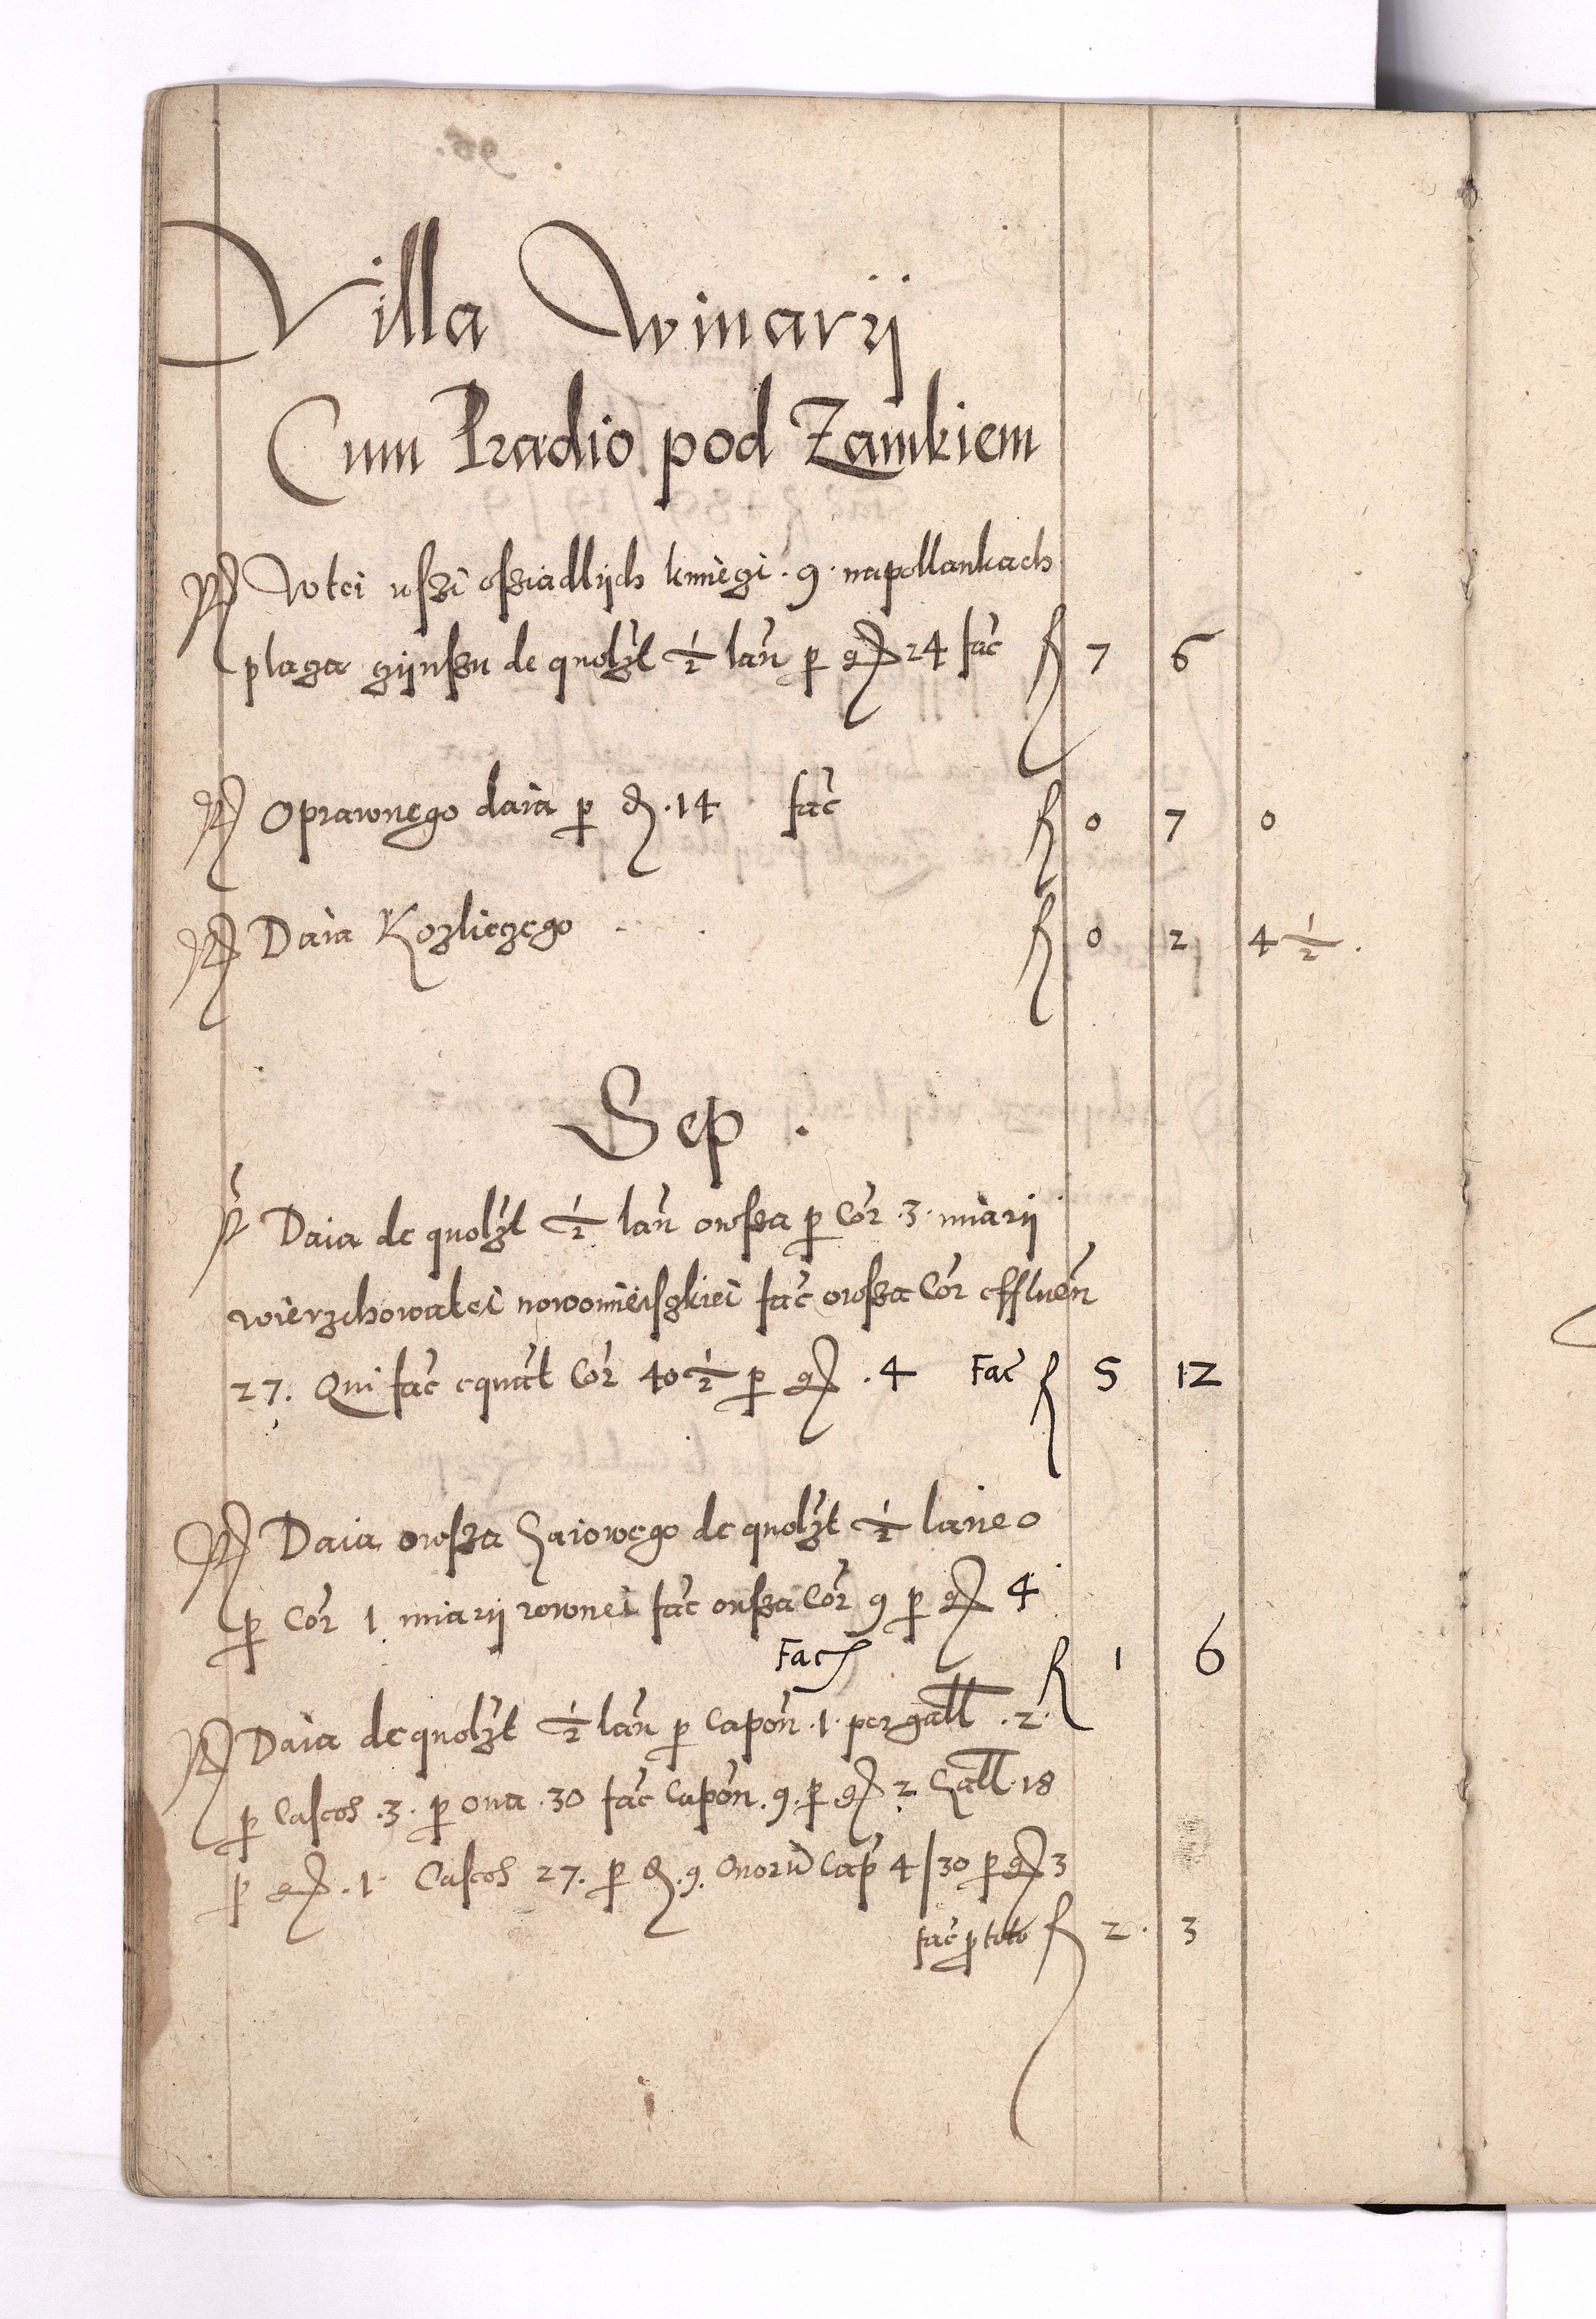 Villa Winarij
Cum Prædio pod Zamkiem
W tei wszi ossiadlijch kmiegi . 9 . napollankach
plaga gijnszu de quolzt ½ lan p gr 24 fac fl 7 6
Oprawnego daia p d . 14 fac fl 0 7 0
Daia Kozliegego fl 0 2 4 ½ .
Sep .
Daia de quolzt ½ lan owsza p Cor . 3 . miarij
wierzchowatei nowomieisgkiei fac owsza Cor effluen
27 . Qui fac equat Cor 40 ½ p gr . 4 Fac fl 5 12
Daia owsza Gaiowego de quolzt ½ laneo
p Cor 1 miarij rownei fac owsza Cor 9 p gr 4
Fac fl 1 6
Daia de quolzt ½ lan p Capon . 1 . per gall . 2 .
p Caseos . 3 . p oua . 30 fac Capon . 9 . p gr 2 Gall . 18
p gr . 1 . Caseos 27 . p d . 9 . Ouorum Cap 4 / 30 p gr 3
fac p toto fl 2 . 3